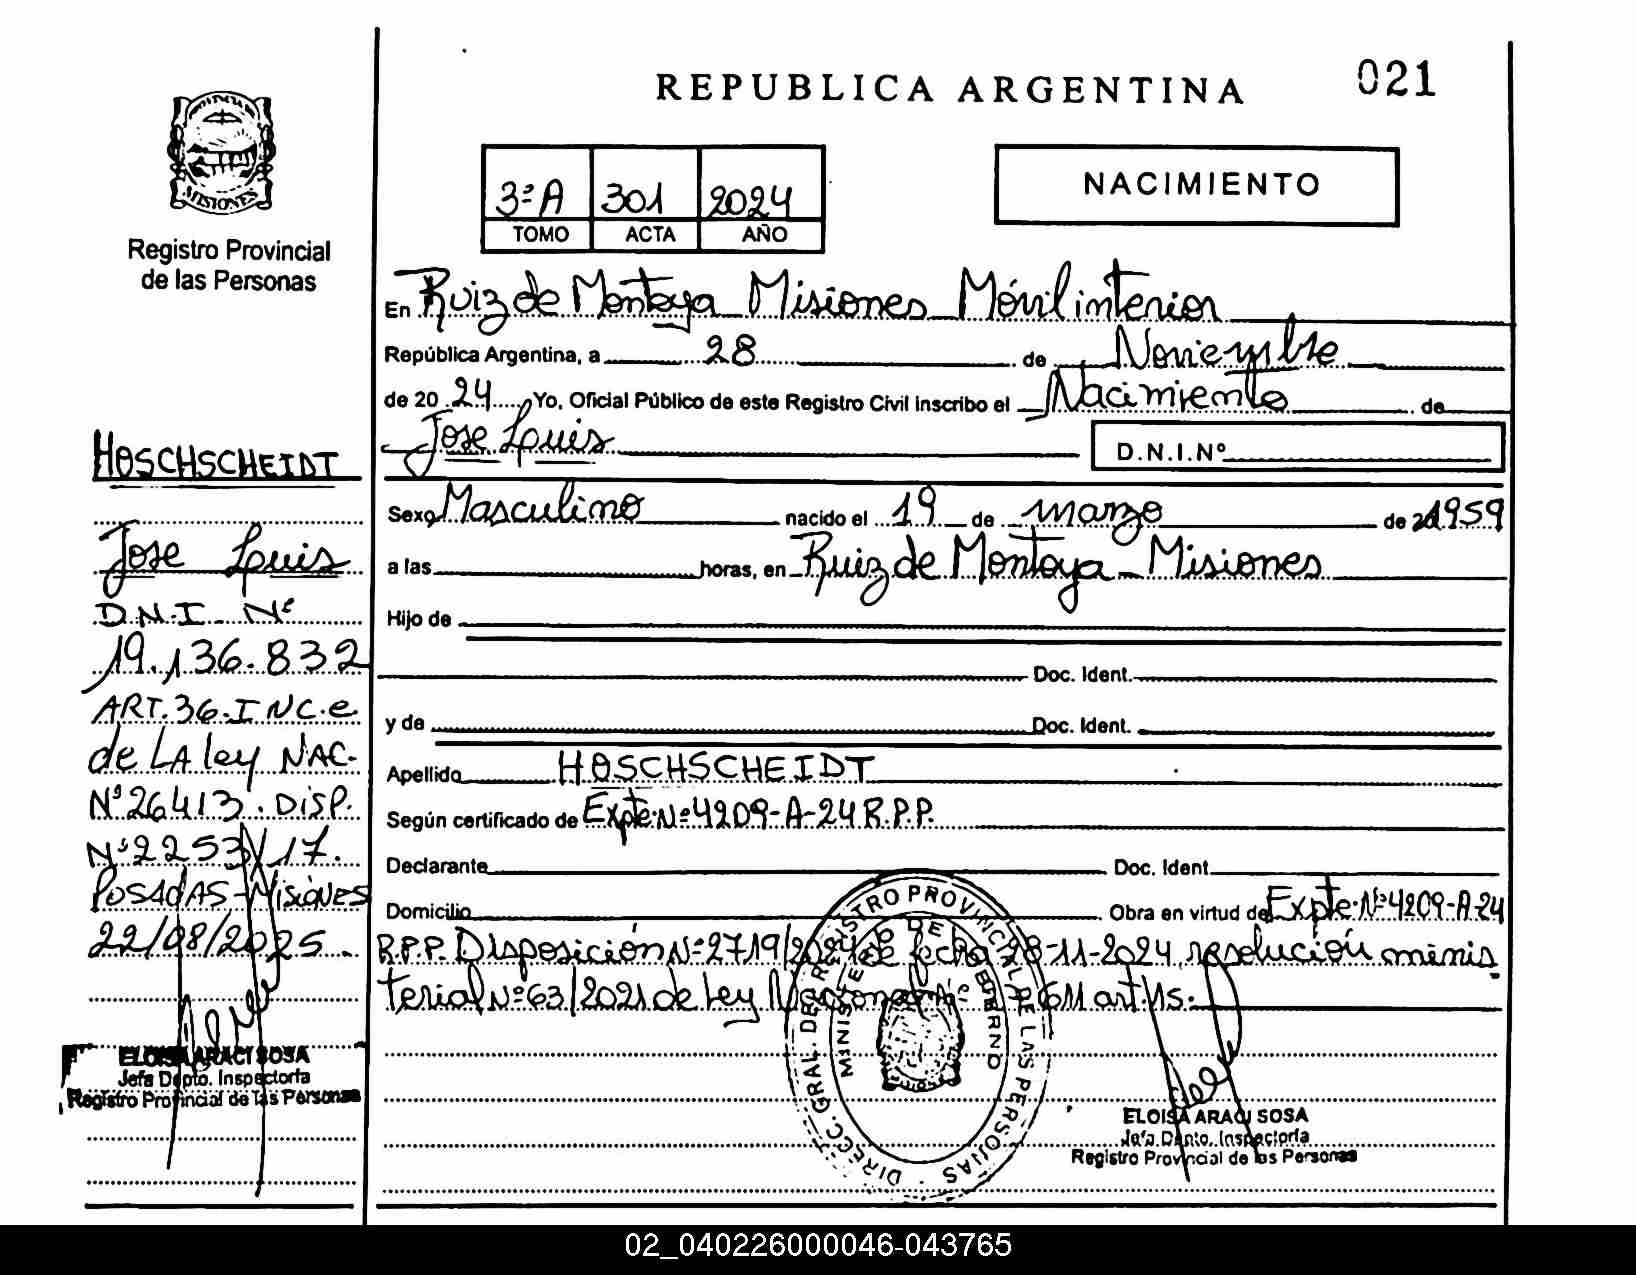 REPUBLICA ARGENTINA
021
MISIONES
Registro Provincial
de las Personas
3ºA 301 2024
TOMO ACTA AÑO
NACIMIENTO
En Ruiz de Montoya Misiones Móvil interior
República Argentina, a 28 de Noviembre
de 20 24 Yo, Oficial Público de este Registro Civil inscribo el Nacimiento de
Jose Luis D.N.I.Nº
Sexo Masculino nacido el 19 de marzo de 1959
a las horas, en Ruiz de Montoya - Misiones
Hijo de
Doc. Ident.
y de Doc. Ident.
Apellido HOSCHSCHEIDT
Según certificado de Expte: Nº 4209-A-24 R.P.P.
Declarante Doc. Ident.
Domicilio Obra en virtud de Expte: Nº 4209-A-24
R.P.P. Disposición Nº 2719/2024 de fecha 28-11-2024, resolución minis
terial Nº 63/2021 de Ley
ELOISA ARACI SOSA
Jefa Dpto. Inspectoría
Registro Provincial de las Personas
DIRECC. GRAL. DE REGISTRO PROVINCIAL DE LAS PERSONAS
MINISTERIO DE GOBIERNO
HOSCHSCHEIDT
Jose Luis
D.N.I. Nº
19.136.832
ART. 36. INC. e
de LA ley NAC.
Nº 26413. DISP.
Nº 2253/17.
POSADAS - Misiones
22/08/2025.
ELOISA ARACI SOSA
Jefa Dpto. Inspectoría
Registro Provincial de las Personas
02_040226000046-043765